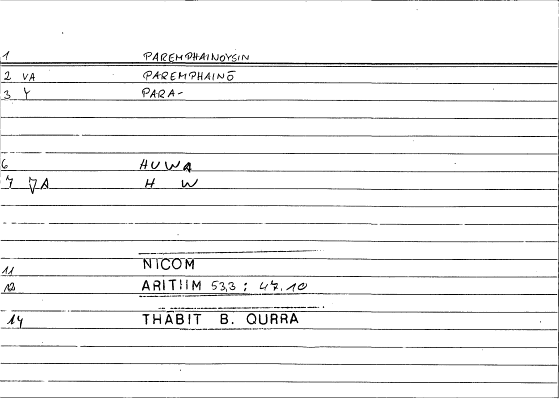 1 PAREMPHAINOYSIN
2 VA PAREMPHAINŌ
3 Y PARA-
6 HUWA
7 ▽A H W
11 NICOM
12 ARITIIM 53,3 : 47.10
14 THABIT B. QURRA